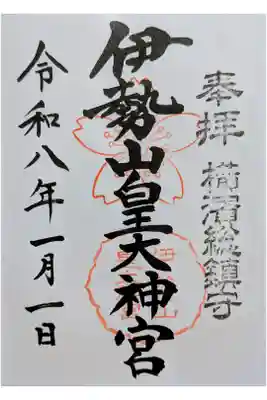 奉拝 横濱総鎮守
伊勢山皇大神宮
令和八年一月一日